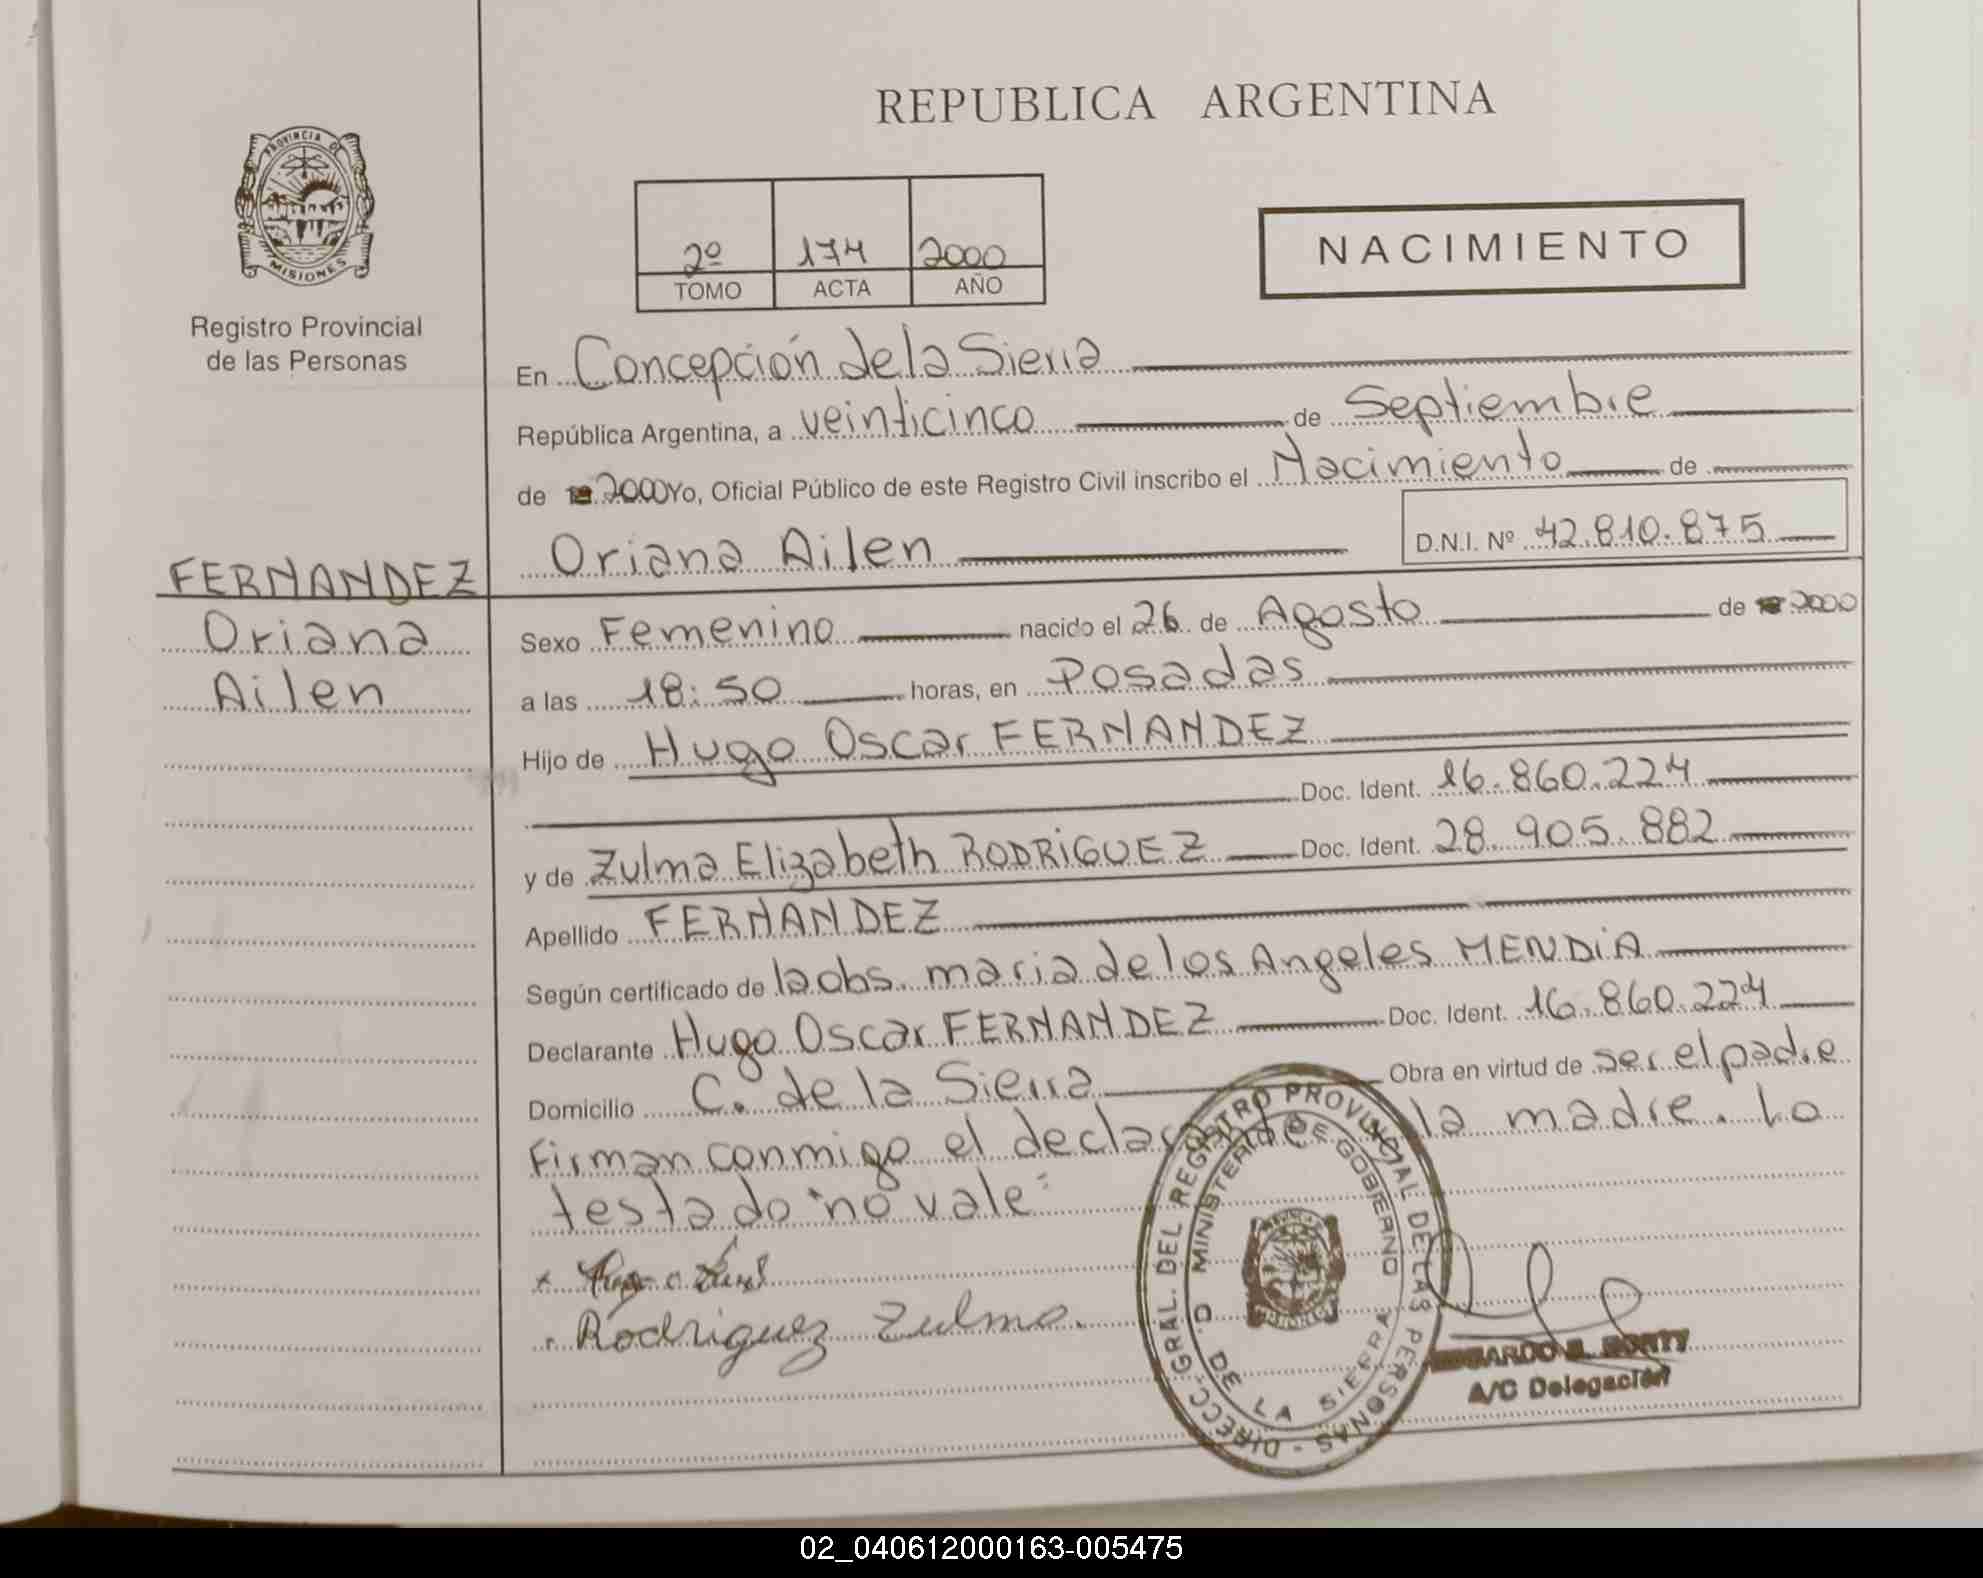 REPUBLICA ARGENTINA
PROVINCIA DE
MISIONES
Registro Provincial
de las Personas
2º 174 2000
TOMO ACTA AÑO
NACIMIENTO
En Concepción de la Sierra
República Argentina, a veinticinco de Septiembre
de 2000 Yo, Oficial Público de este Registro Civil inscribo el Nacimiento de
Oriana Ailen D.N.I. Nº 42.810.875
FERNANDEZ
Oriana
Ailen
Sexo Femenino nacido el 26 de Agosto de 2000
a las 18:50 horas, en Posadas
Hijo de Hugo Oscar FERNANDEZ
Doc. Ident. 16.860.224
y de Zulma Elizabeth RODRiGUEZ Doc. Ident. 28.905.882
Apellido FERNANDEZ
Según certificado de la obs. maria de los Angeles MENDiA
Declarante Hugo Oscar FERNANDEZ Doc. Ident. 16.860.224
Domicilio C. de la Sierra Obra en virtud de ser el padre
Firman conmigo el declarante y la madre. Lo
testado "no vale"
Rodriguez Zulma.
DIRECC. GRAL. DEL REGISTRO PROVINCIAL DE LAS PERSONAS -
MINISTERIO DE GOBIERNO
C. DE LA SIERRA
A/C Delegación
02_040612000163-005475